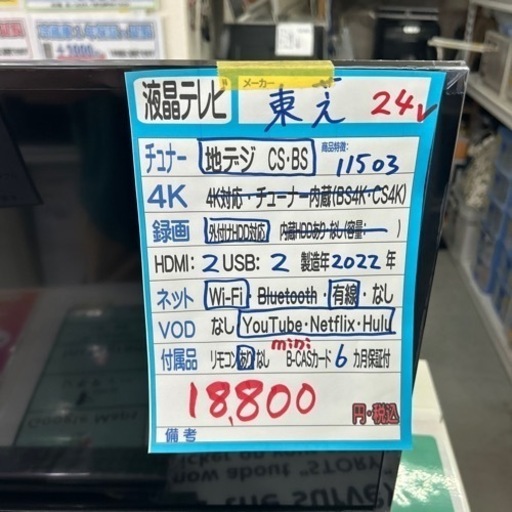 メーカー
液晶テレビ 東芝 24V
チュナー 地デジ CS・BS 商品特徴: 11503
4K 4K対応・チューナー内蔵(BS4K・CS4K)
録画 外付けHDD対応 内蔵HDDあり・なし(容量: )
HDMI: 2 USB: 2 製造年2022年
ネット Wi-Fi・Bluetooth・有線・なし
VOD なし YouTube・Netflix・Hulu
mini
付属品 リモコンあり なし B-CASカード 6カ月保証付
18,800 円・税込
備考
Google Maps
now about "STORY
the survey